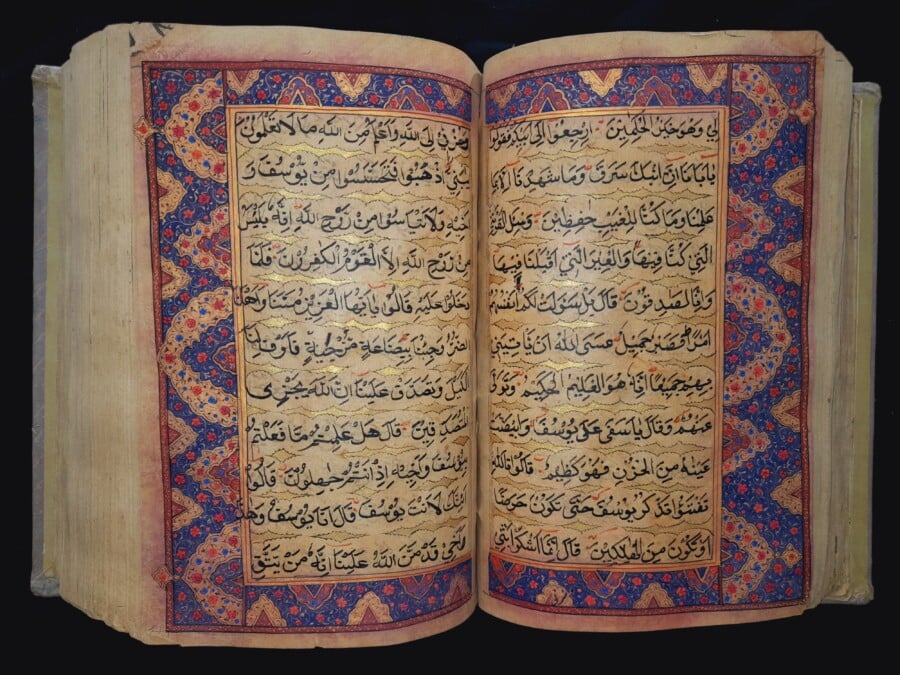 لِي وَهُوَ خَيْرُ الْحٰكِمِينَ اِرْجِعُوا اِلٰى اَبِيكُمْ فَقُولُوا
يٰاَبٰانٰا اِنَّ ابْنَكَ سَرَقَ وَمٰا شَهِدْنٰا اِلّٰا بِمٰا
عَلِمْنٰا وَمٰا كُنّٰا لِلْغَيْبِ حٰفِظِينَ وَسْئَلِ الْقَرْيَةَ
الَّتِي كُنّٰا فِيهٰا وَالْعِيرَ الَّتِي اَقْبَلْنٰا فِيهٰا
وَاِنّٰا لَصٰدِقُونَ قٰالَ بَلْ سَوَّلَتْ لَكُمْ اَنْفُسُكُمْ
اَمْرًا فَصَبْرٌ جَمِيلٌ عَسَى اللّٰهُ اَنْ يَاْتِيَنِي
بِهِمْ جَمِيعًا اِنَّهُ هُوَ الْعَلِيمُ الْحَكِيمُ وَتَوَلّٰى
عَنْهُمْ وَقٰالَ يٰا اَسَفٰى عَلٰى يُوسُفَ وَابْيَضَّتْ
عَيْنٰاهُ مِنَ الْحُزْنِ فَهُوَ كَظِيمٌ قٰالُوا تَاللّٰهِ
تَفْتَؤُا تَذْكُرُ يُوسُفَ حَتّٰى تَكُونَ حَرَضًا
اَوْ تَكُونَ مِنَ الْهٰالِكِينَ قٰالَ اِنَّمٰا اَشْكُوا بَثِّي
وَحُزْنِي اِلَى اللّٰهِ وَاَعْلَمُ مِنَ اللّٰهِ مٰا لٰا تَعْلَمُونَ
يٰبَنِيَّ اذْهَبُوا فَتَحَسَّسُوا مِنْ يُوسُفَ وَ
اَخِيهِ وَلٰا تَايْئَسُوا مِنْ رَوْحِ اللّٰهِ اِنَّهُ لٰا يَايْئَسُ
مِنْ رَوْحِ اللّٰهِ اِلَّا الْقَوْمُ الْكٰفِرُونَ فَلَمّٰا
دَخَلُوا عَلَيْهِ قٰالُوا يٰا اَيُّهَا الْعَزِيزُ مَسَّنٰا وَاَهْلَنَا
الضُّرُّ وَجِئْنٰا بِبِضٰاعَةٍ مُزْجٰيةٍ فَاَوْفِ لَنَا
الْكَيْلَ وَتَصَدَّقْ عَلَيْنٰا اِنَّ اللّٰهَ يَجْزِي
الْمُتَصَدِّقِينَ قٰالَ هَلْ عَلِمْتُمْ مٰا فَعَلْتُمْ
بِيُوسُفَ وَاَخِيهِ اِذْ اَنْتُمْ جٰهِلُونَ قٰالُوا
اَئِنَّكَ لَاَنْتَ يُوسُفُ قٰالَ اَنَا يُوسُفُ وَهٰذٰا
اَخِي قَدْ مَنَّ اللّٰهُ عَلَيْنٰا اِنَّهُ مَنْ يَتَّقِ